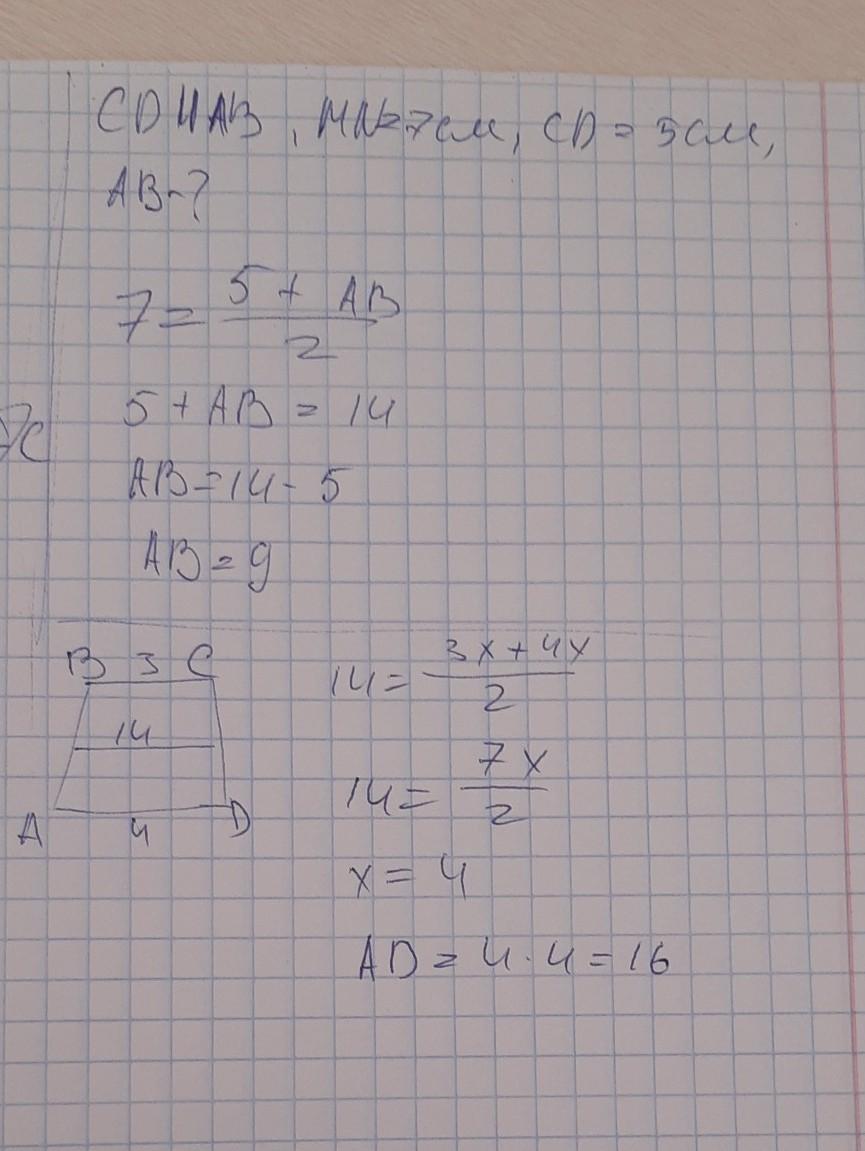 CD∥AB, MN=7см, CD = 5см,
AB-?
7 = (5 + AB)/2
5 + AB = 14
AB=14-5
AB=9
B 3 C
14
A 4 D
14 = (3x+4x)/2
14 = 7x/2
x = 4
AD = 4·4=16